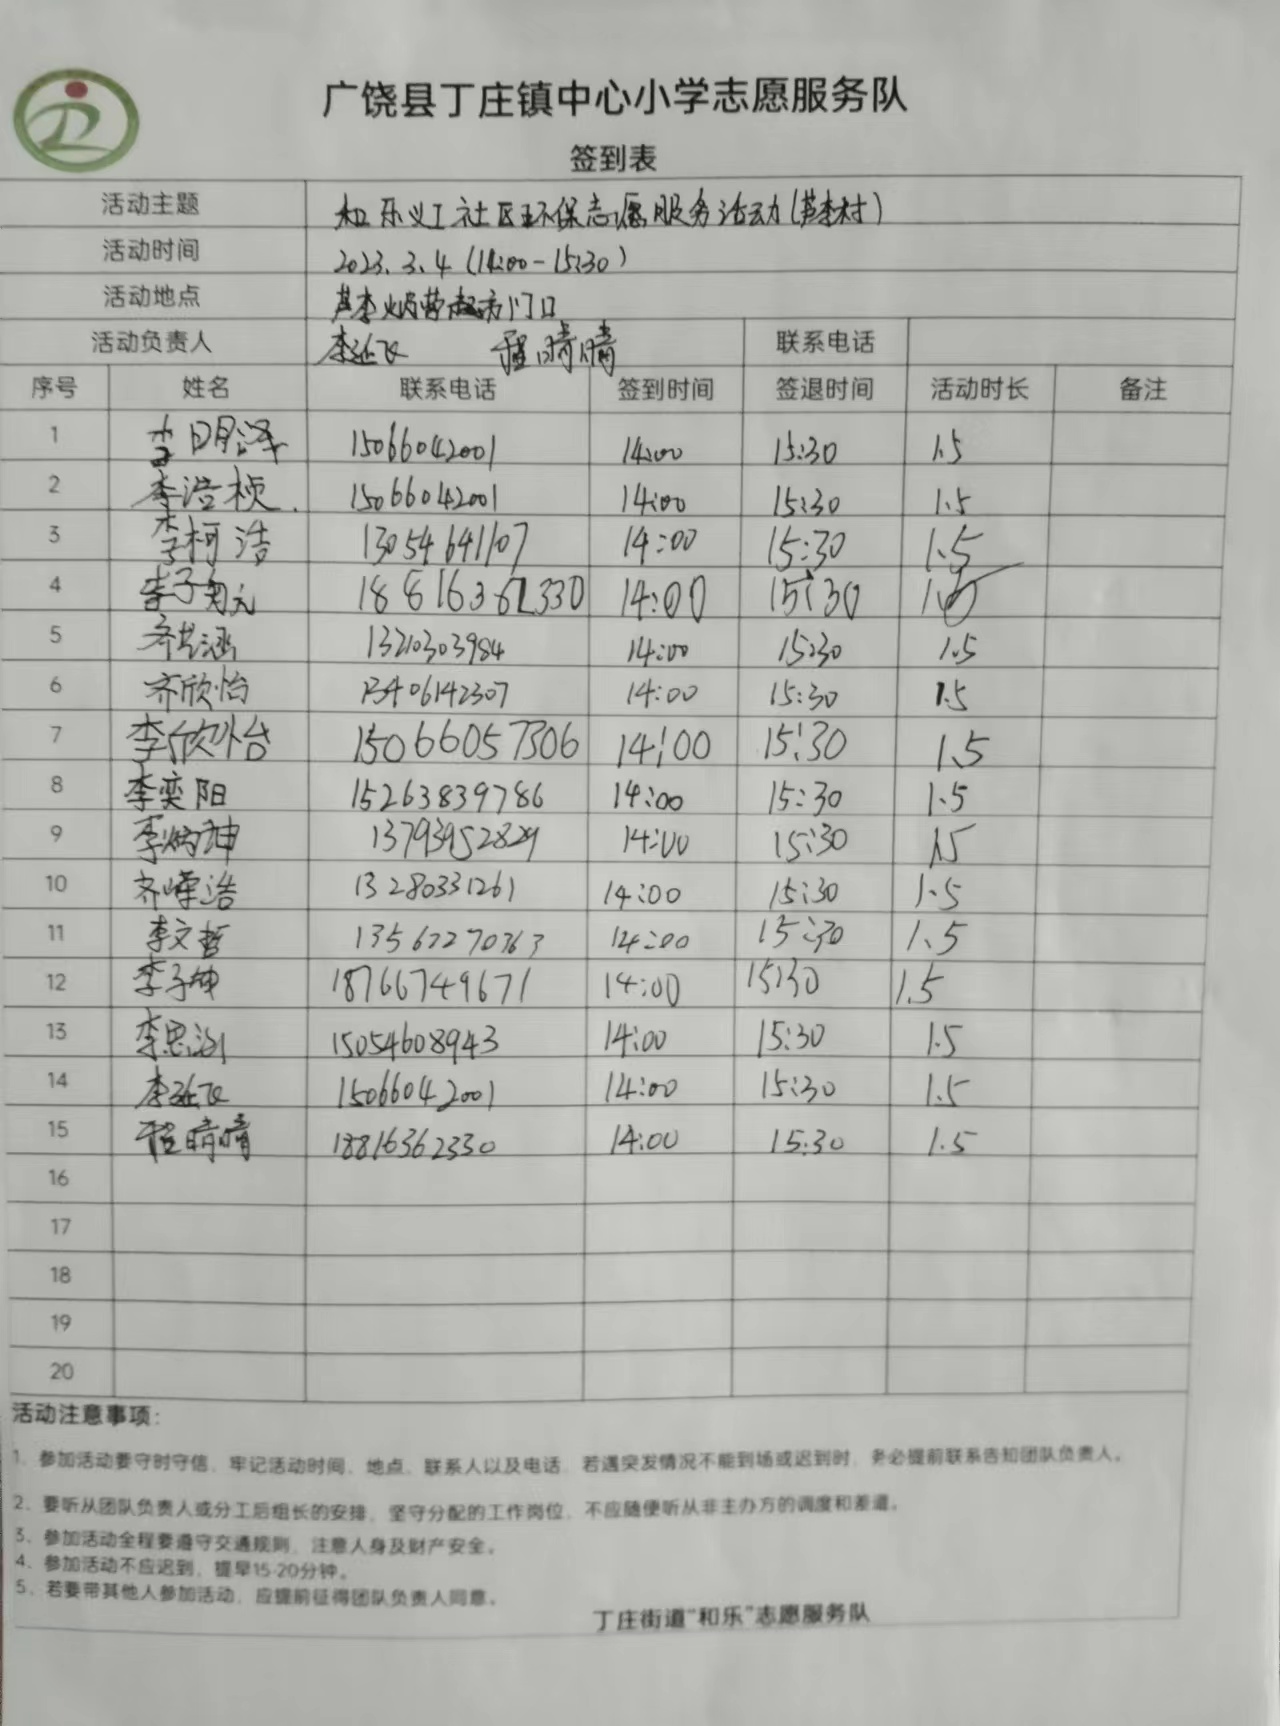 广饶县丁庄镇中心小学志愿服务队
签到表
活动主题 和乐义工社区环保志愿服务活动(芦李村)
活动时间 2023.3.4 (14:00-15:30)
活动地点 芦李 超市门口
活动负责人 李延飞 程晴晴 联系电话
序号 姓名 联系电话 签到时间 签退时间 活动时长 备注
1 李明泽 15066042001 14:00 15:30 1.5
2 李浩桢 15066042001 14:00 15:30 1.5
3 李柯浩 13054641107 14:00 15:30 1.5
4 李子 18816362330 14:00 15:30 1.5
5 齐 涵 13210303984 14:00 15:30 1.5
6 齐欣怡 13406142307 14:00 15:30 1.5
7 李欣怡 15066057306 14:00 15:30 1.5
8 李奕阳 15263839786 14:00 15:30 1.5
9 李炳坤 13793952829 14:00 15:30 1.5
10 齐嶸浩 13280331261 14:00 15:30 1.5
11 李文哲 13562270763 14:00 15:30 1.5
12 李子坤 18766749671 14:00 15:30 1.5
13 李思 15054608943 14:00 15:30 1.5
14 李延飞 15066042001 14:00 15:30 1.5
15 程晴晴 18816362330 14:00 15:30 1.5
16
17
18
19
20
活动注意事项:
1、参加活动要守时守信，牢记活动时间、地点、联系人以及电话，若遇突发情况不能到场或迟到时，务必提前联系告知团队负责人。
2、要听从团队负责人或分工后组长的安排，坚守分配的工作岗位，不应随便听从非主办方的调度和差遣。
3、参加活动全程要遵守交通规则，注意人身及财产安全。
4、参加活动不应迟到，提早15-20分钟。
5、若要带其他人参加活动，应提前征得团队负责人同意。
丁庄街道“和乐”志愿服务队